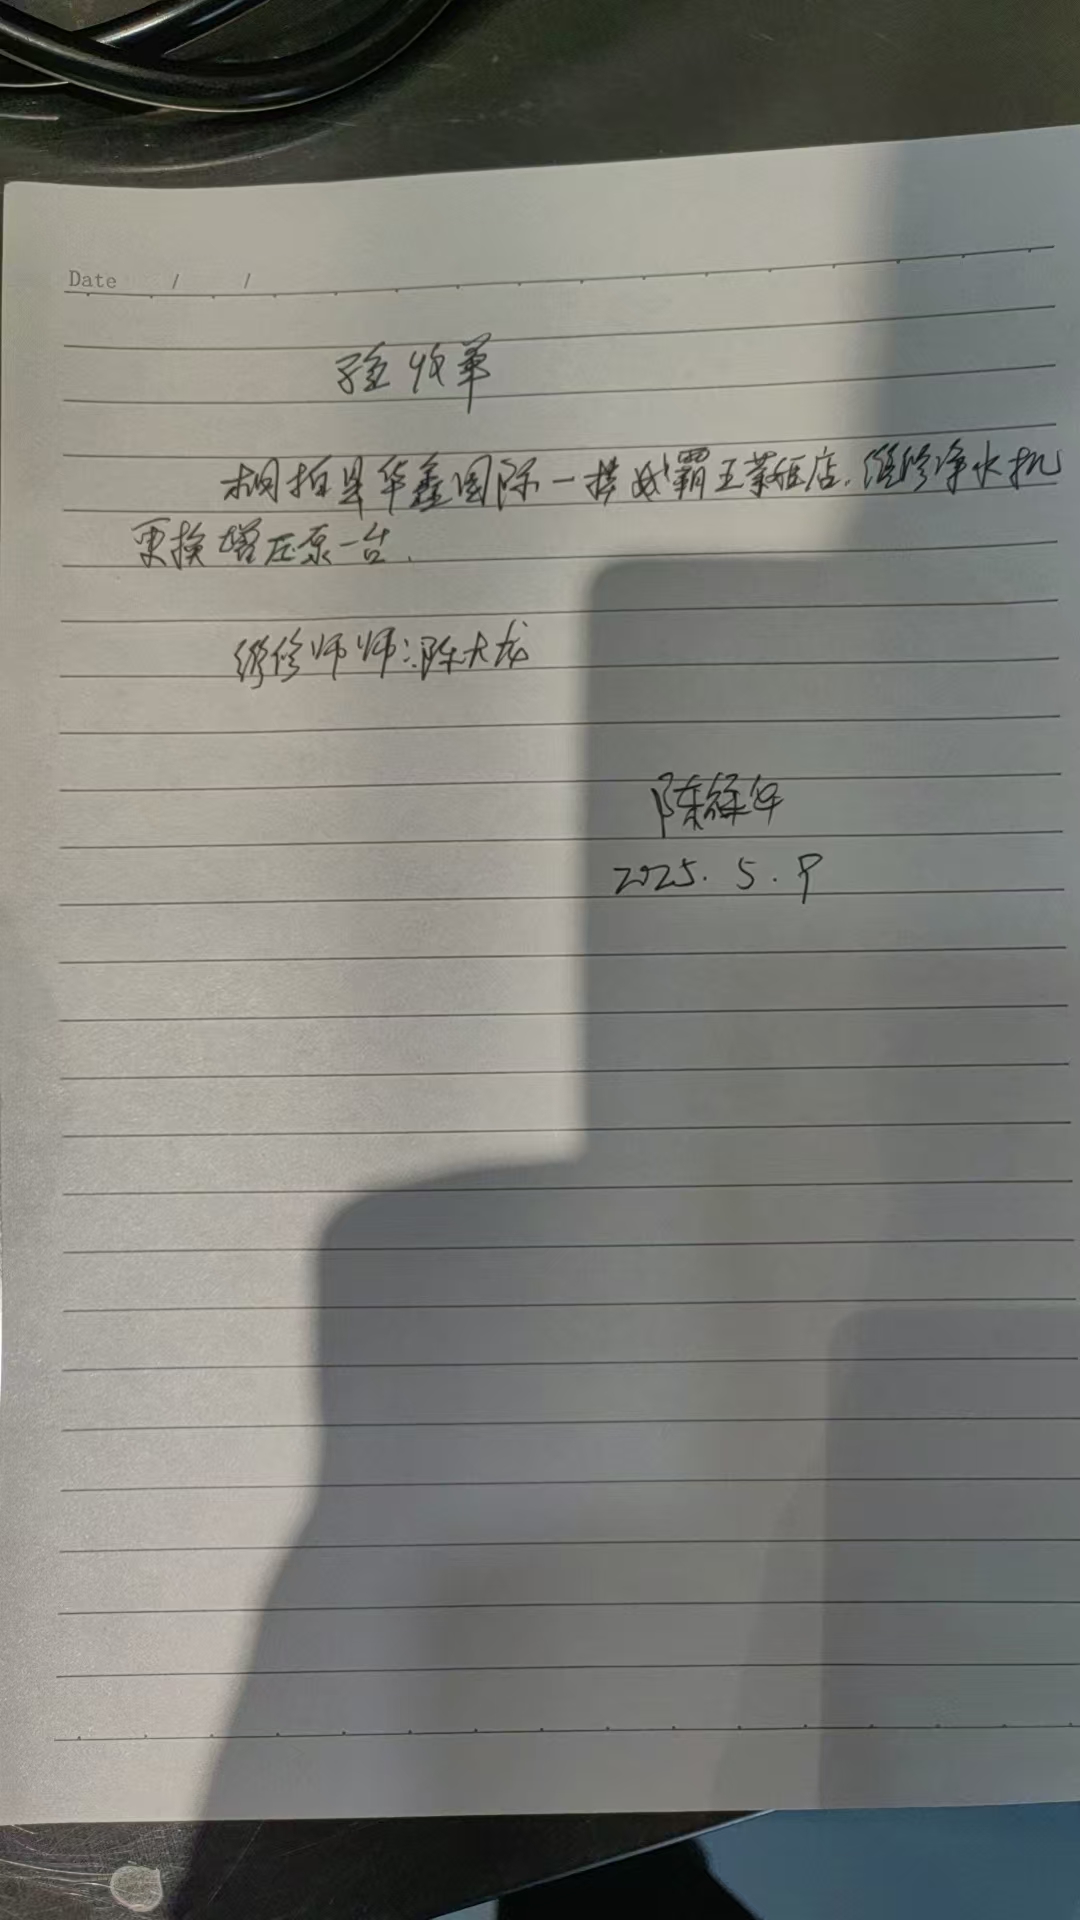 Date / /
验收单
桐柏县华鑫国际一楼 霸王茶姬店.维修净水机
更换增压泵一台.
维修师师:陈大龙
陈
2025. 5. 9